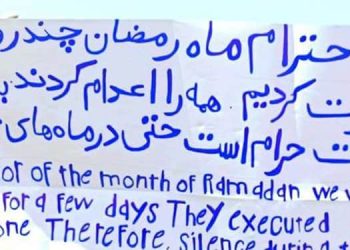 حترام ماه رمضان چند رو
ت کردیم. همه را اعدام کردند
ت حرام است حتی در ماه های
or of the month of Ramadan we w
For a few days They executed
one Therefore, silence during